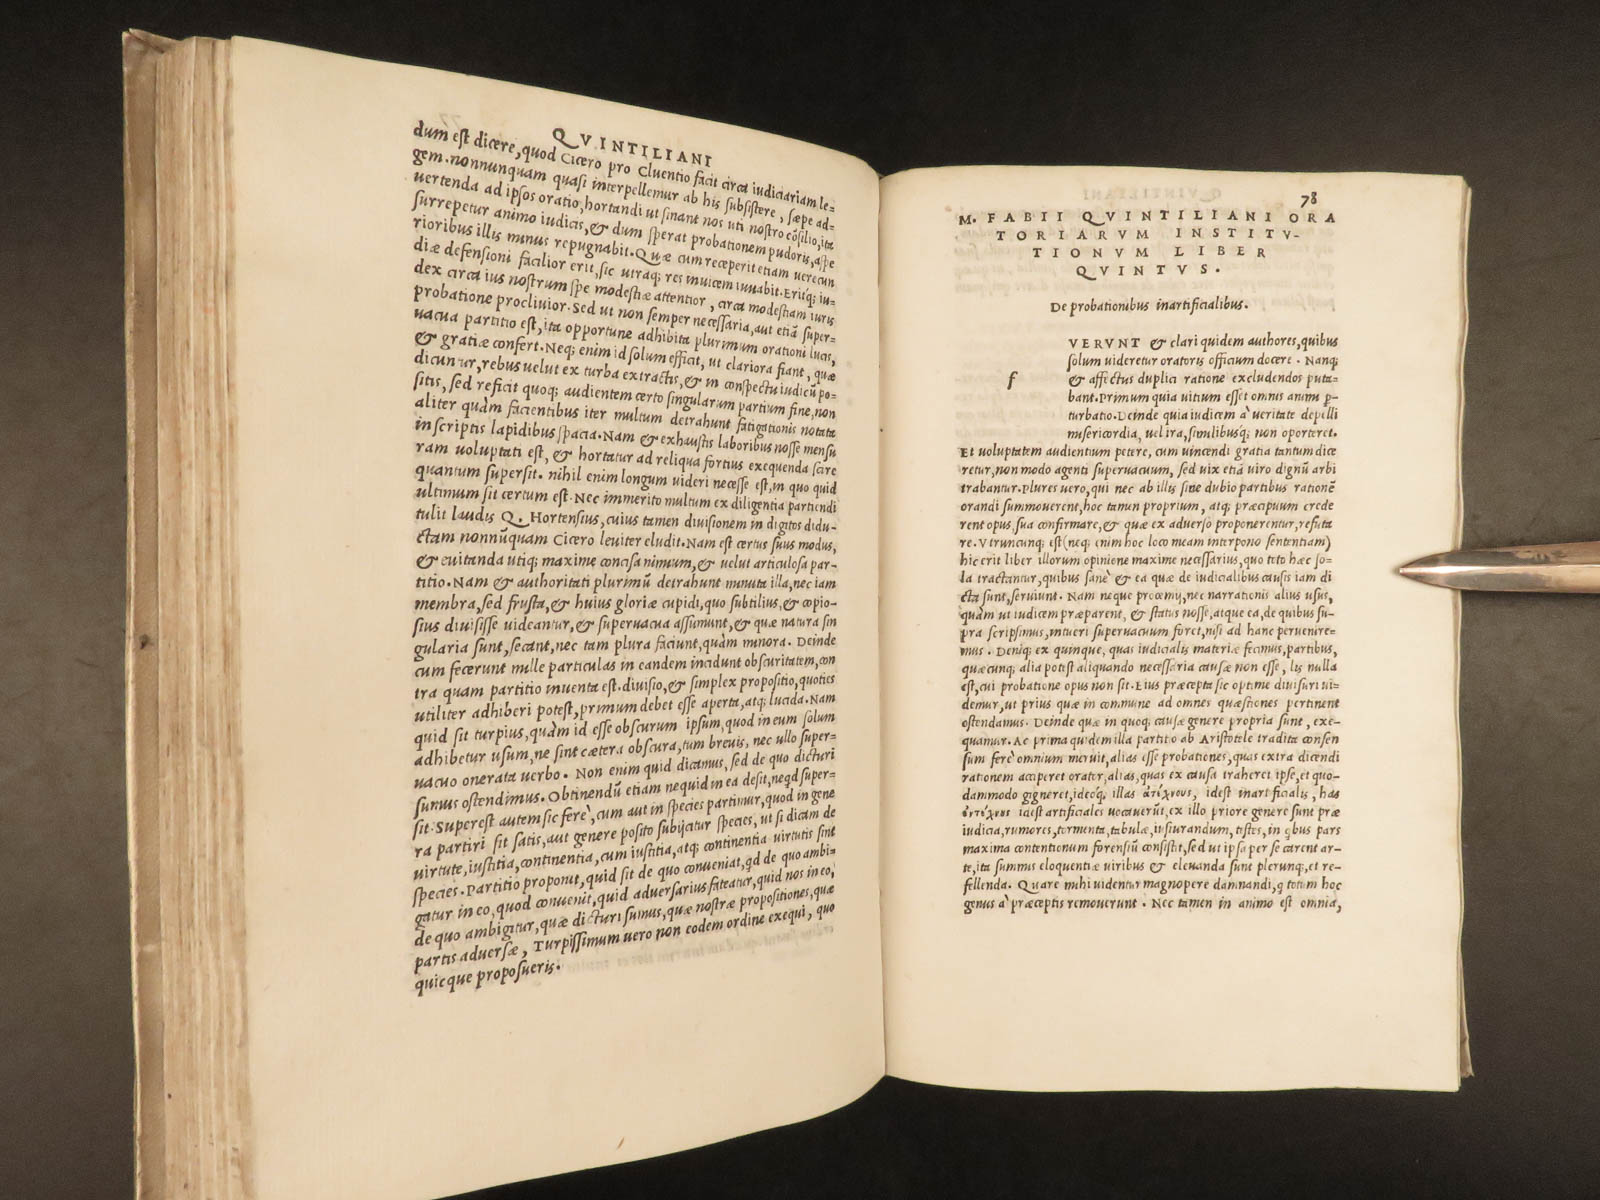 QVINTILIANI
dum est dicere, quod Cicero pro Cluentio facit circa iudiciariam le=
gem. nonnunquam quasi interpellemur ab his subsistere, sæpe ad=
uertenda ad ipsos oratio, hortandi ut sinant nos uti nostro cõsilio, ita
surrepetur animo iudicis, & dum sperat probationem pudoris, aspe
rioribus illis minus repugnabit. Quæ cum receperit etiam uerecun
diæ defensioni facilior erit, sic utraq; res inuicem iuuabit. Eritq; iu=
dex circa ius nostrum spe modestiæ attentior, circa modestiam iuris
probatione procliuior. Sed ut non semper necessaria, aut etiã super=
uacua partitio est, ita opportune adhibita plurimum orationi lucis,
& gratiæ confert. Neq; enim id solum efficit, ut clariora fiant, quæ
dicuntur, rebus uelut ex turba extractis, & in conspectu iudicũ po=
sitis, sed reficit quoq; audientem certo singularum partium fine, non
aliter quàm facientibus iter multum detrahunt fatigationis notata
in scriptis lapidibus spacia. Nam & exhaustis laboribus nosse mensu
ram uoluptati est, & hortatur ad reliqua fortius exequenda scire
quantum supersit. nihil enim longum uideri necesse est, in quo quid
ultimum sit certum est. Nec immerito multum ex diligentia partiendi
tulit laudis Q. Hortensius, cuius tamen diuisionem in digitos didu=
ctam nonnũquam Cicero leuiter eludit. Nam est certus suus modus,
& euitanda utiq; maxime concisa nimium, & uelut articulosa par=
titio. Nam & authoritati plurimũ detrahunt minuta illa, nec iam
membra, sed frusta, & huius gloriæ cupidi, quo subtilius, & copio=
sius diuisisse uideantur, & superuacua assumunt, & quæ natura sin
gularia sunt, secant, nec tam plura faciunt, quàm minora. Deinde
cum fecerunt mille particulas in eandem incidunt obscuritatem, con
tra quam partitio inuenta est. diuisio, & simplex propositio, quoties
utiliter adhiberi potest, primum debet esse aperta, atq; lucida. Nam
quid sit turpius, quàm id esse obscurum ipsum, quod in eum solum
adhibetur usum, ne sint cætera obscura, tum breuis, nec ullo super=
uacuo onerata uerbo. Non enim quid dicamus, sed de quo dicturi
sumus ostendimus. Obtinendũ etiam ne quid in ea desit, neqd super=
sit. Superest autem sic ferè, cum aut in species partimur, quod in gene
ra partiri sit satis, aut genere posito subijcatur species, ut si dicam de
uirtute, iustitia, continentia, cum iustitia, atq; continentia uirtutis sint
species. Partitio proponit, quid sit de quo conueniat, qd de quo ambi=
gatur in eo, quod conuenit, quid aduersarius fateatur, quid nos in eo,
de quo ambigitur, quæ dicturi sumus, quæ nostræ propositiones, quæ
partis aduersæ, Turpissimum uero non eodem ordine exequi, quo
quicque proposueris.
78
M. FABII QVINTILIANI ORA
TORIARVM INSTITV-
TIONVM LIBER
QVINTVS.
De probationibus inartificialibus.
VERVNT & clari quidem authores, quibus
solum uideretur oratoris officium docere. Nanq;
f & affectus duplici ratione excludendos puta=
bant. Primum quia uitium esset omnis animi p=
turbatio. Deinde quia iudicem à ueritate depelli
misericordia, uel ira, similibusq; non oporteret.
Et uoluptatem audientum petere, cum uincendi gratia tantum dice
retur, non modo agenti superuacuum, sed uix etiã uiro dignũ arbi
trabantur. Plures uero, qui nec ab illis sine dubio partibus rationẽ
orandi summouerent, hoc tamen proprium, atq; præcipuum crede
rent opus, sua confirmare, & quæ ex aduerso proponerentur, refuta
re. Vtruncunq; est (neq; enim hoc loco meam interpono sententiam)
hic erit liber illorum opinione maxime necessarius, quo toto hæc so=
la tractantur, quibus sanè & ea quæ de iudicialibus causis iam di
cta sunt, seruiunt. Nam neque proœmij, nec narrationis alius usus,
quàm ut iudicem præparent, & status nosse, atque ea, de quibus su=
pra scripsimus, intueri superuacuum foret, nisi ad hanc perueniremus
mus. Deniq; ex quinque, quas iudicialis materiæ fecimus, partibus,
quæcunq; alia potest aliquando necessaria causæ non esse, lis nulla
est, cui probatione opus non sit. Eius præcepta sic optime diuisuri ui=
demur, ut prius quæ in commune ad omnes quæstiones pertinent
ostendamus. Deinde quæ in quoq; causæ genere propria sunt, exe=
quamur. Ac prima quidem illa partitio ab Aristotele tradita consen
sum ferè omnium meruit, alias esse probationes, quas extra dicendi
rationem acciperet orator, alias, quas ex causa traheret ipse, et quo=
dammodo gigneret, ideoq; illas ἀτέχνους, idest inartificialis, has
ἐντέχνους idest artificiales uocauerũt, ex illo priore genere sunt præ
iudicia, rumores, tormenta, tabulæ, iusiurandum, testes, in qbus pars
maxima contentionum forensiũ consistit, sed ut ipsa per se carent ar=
te, ita summis eloquentiæ uiribus & eleuanda sunt plerunq; et re=
fellenda. Quare mihi uidentur magnopere damnandi, q totum hoc
genus à præceptis remouerunt. Nec tamen in animo est omnia,